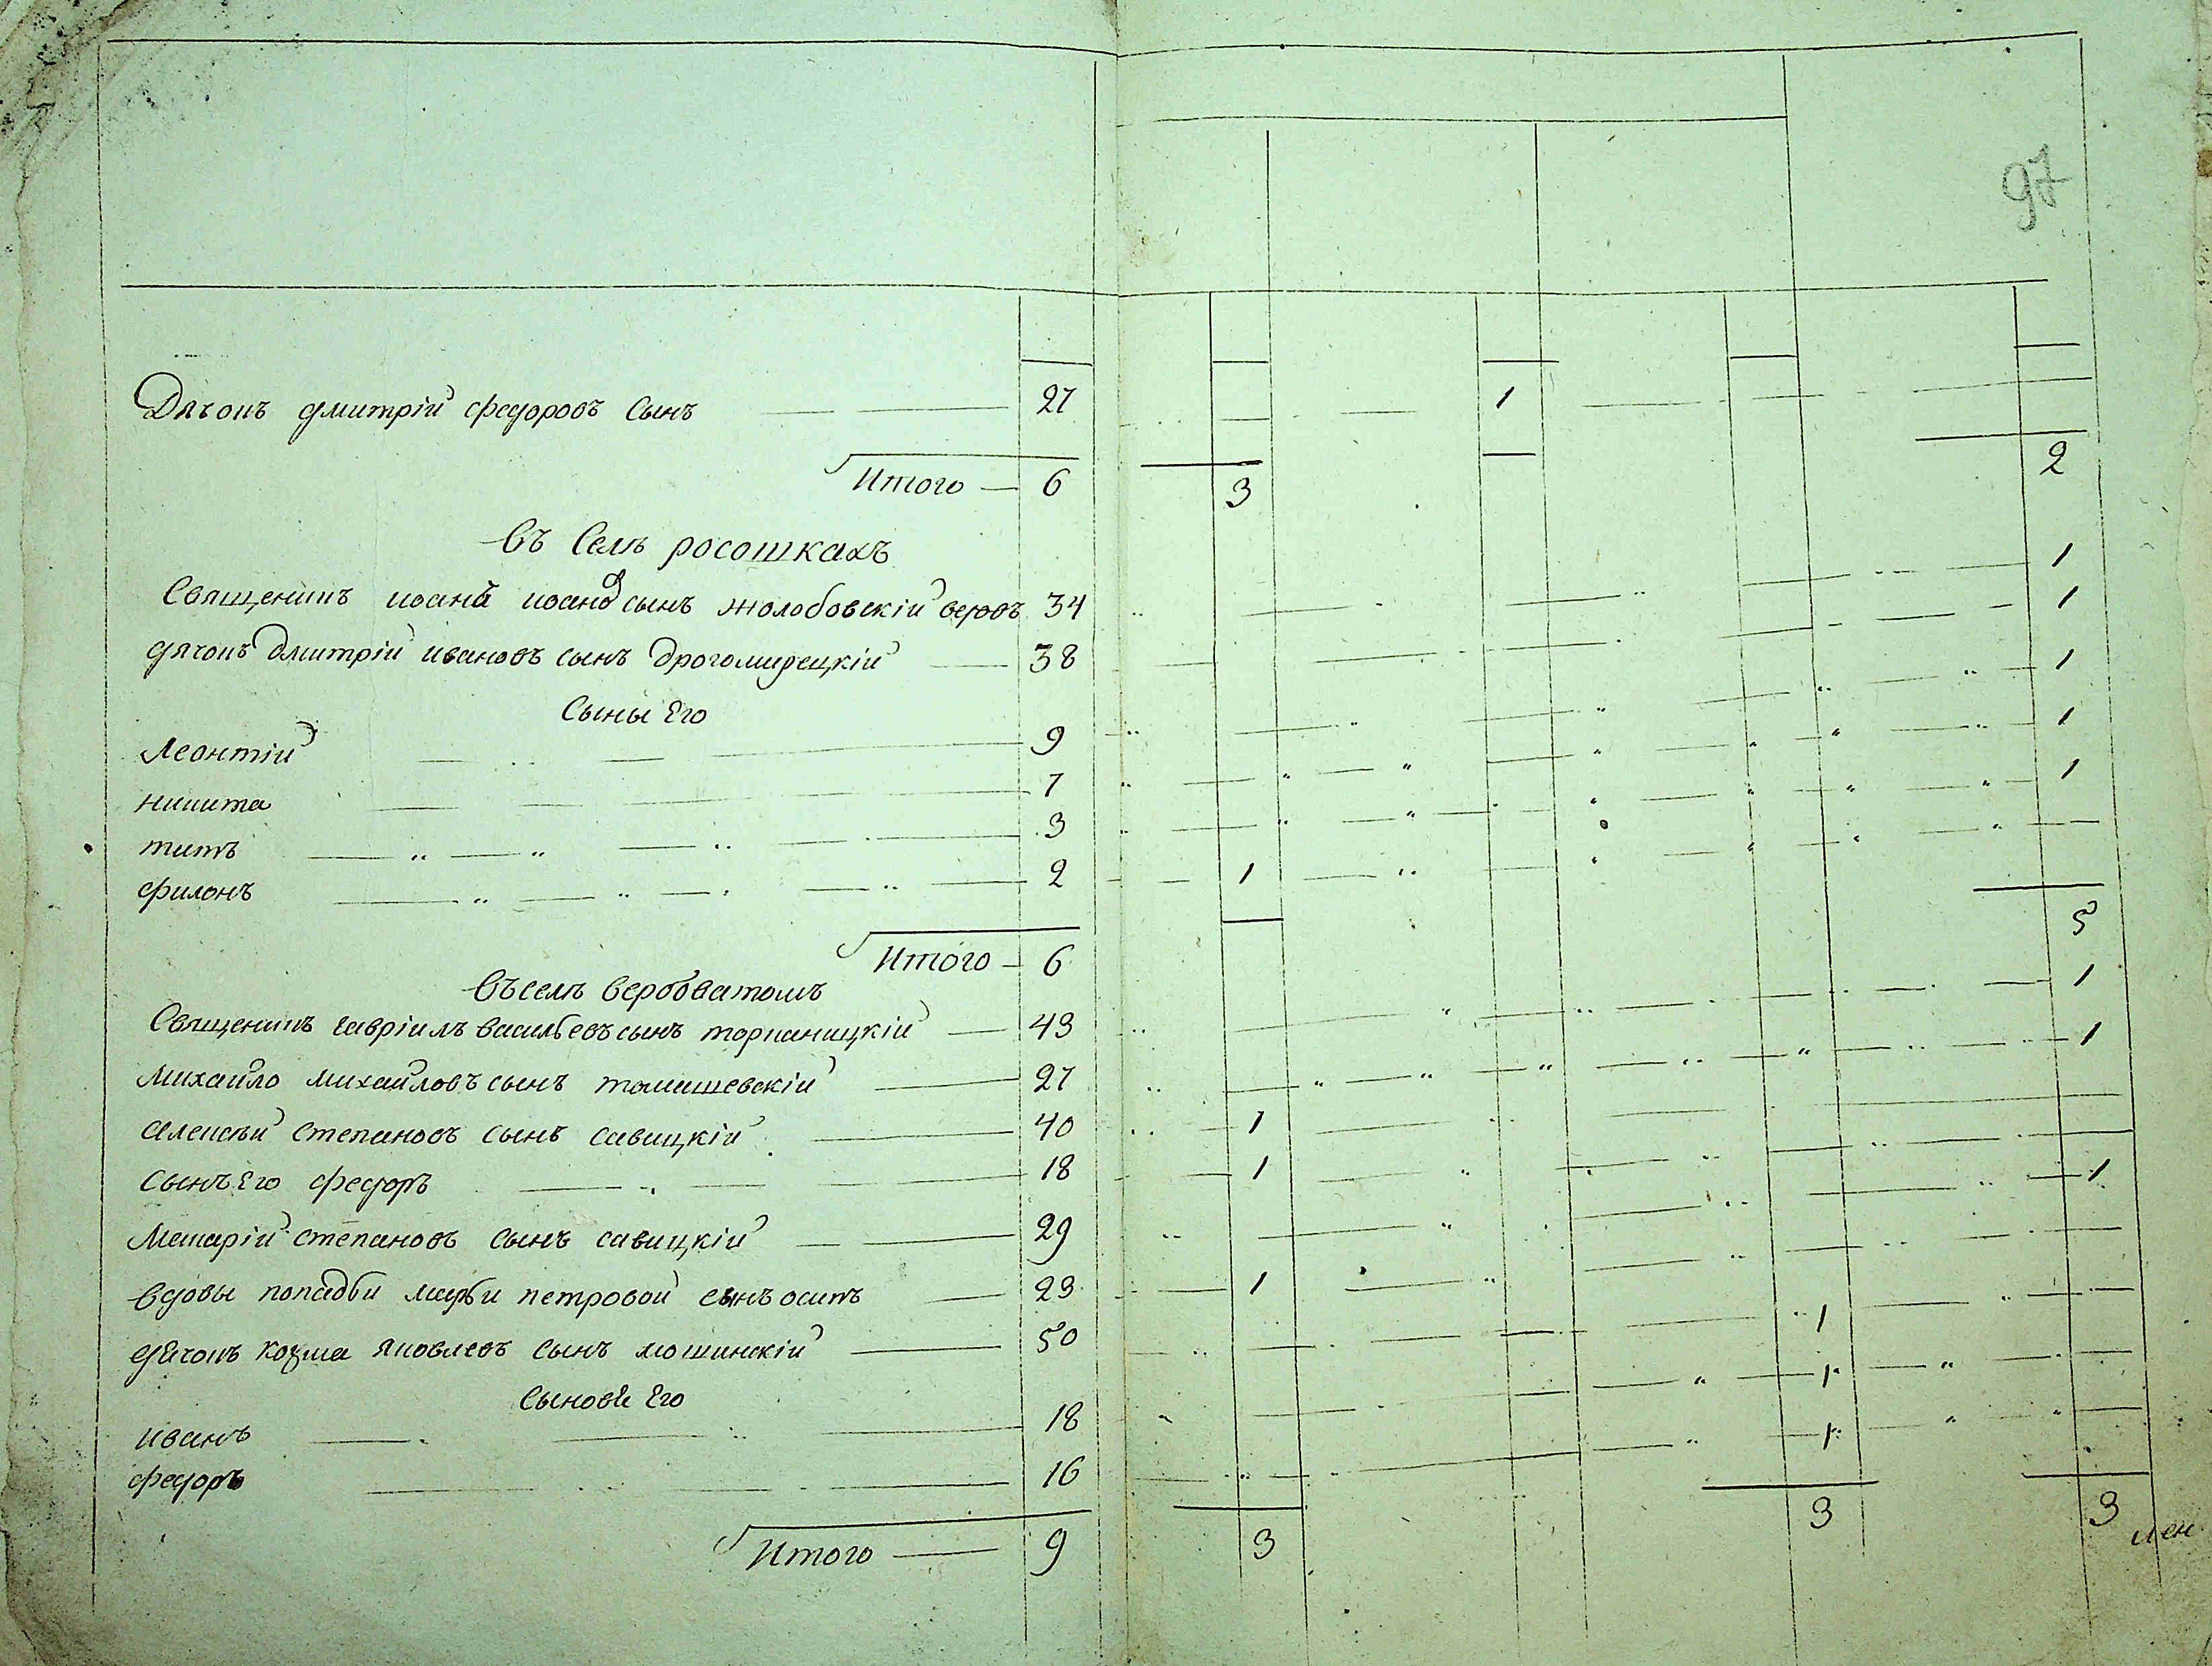 97
Дячокъ дмитрій федоровъ сынъ 27 1
Итого 6 3 2
Въ Селѣ росошкахъ
Священикъ иоанъ иоановъ сынъ жолобовскій вдовъ 34 1
дячокъ дмитрій ивановъ сынъ Дрогомирецкій 38 1
Сыны Его
Леонтій 9 1
никита 7 1
титъ 3 1
филонъ 2 1
Итого 6 5
Въ селѣ вербоватомъ
Священикъ гавріилъ васильевъ сынъ торканицкій 43 1
михайло михайловъ сынъ томашевскій 27 1
алексѣй степановъ сынъ савицкій 40 1
сынъ Его федоръ 18 1
Макарій степановъ сынъ савицкій 29 1
вдовы попадьи марьи петровой сынъ осипъ 23 1
дячокъ козма яковлевъ сынъ мошинскій 50 1
Сыновѣ Его
иванъ 18 1
федоръ 16 1
Итого 9 3 3 3